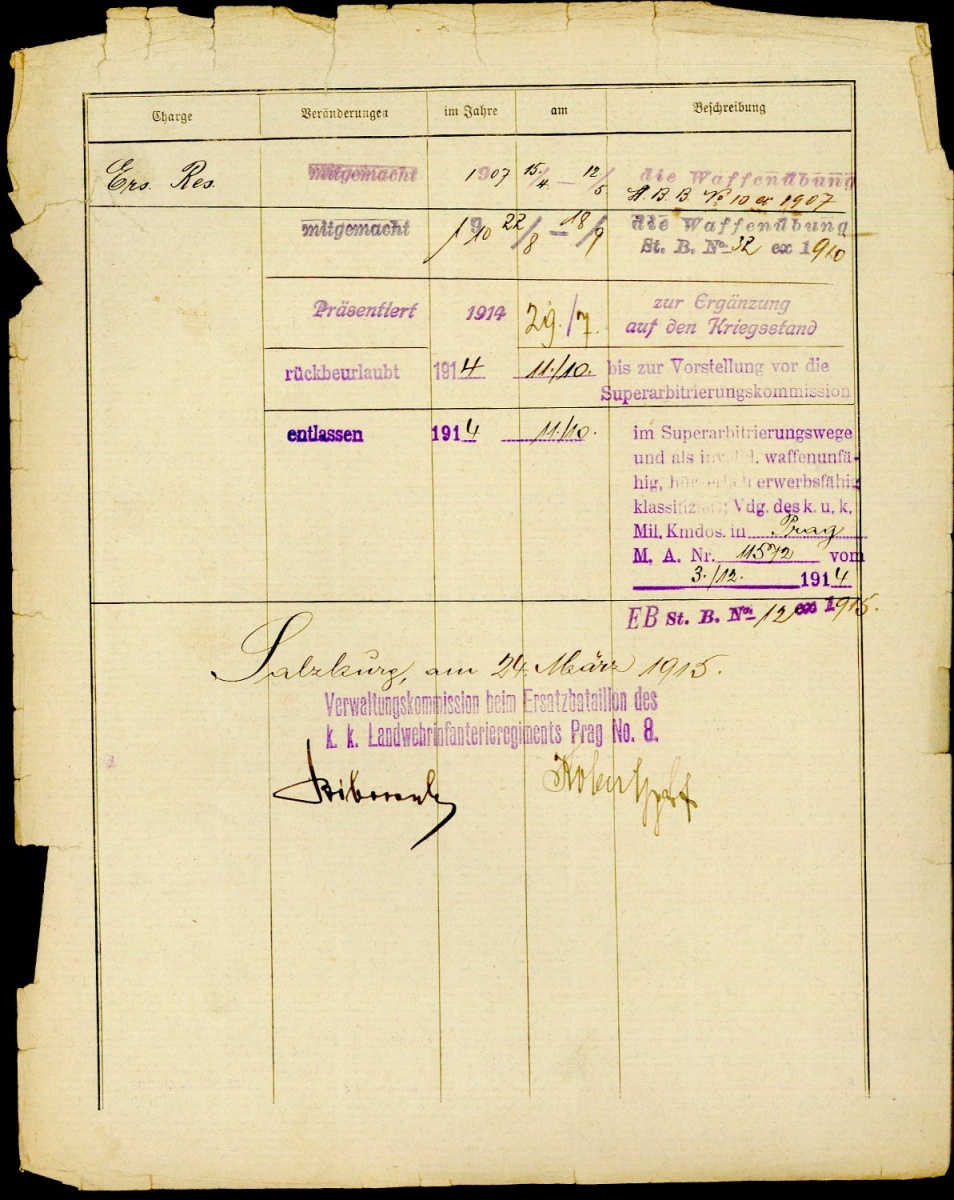 Charge Veränderungen im Jahre am Beschreibung
Ers. Res. mitgemacht 1907 15./4. — 12/5. die Waffenübung
B. B. No 10 ex 1907
mitgemacht 1910 22/8 — 18/9 die Waffenübung
St. B. No. 32 ex 1910
Präsentiert 1914 29./7. zur Ergänzung
auf den Kriegsstand
rückbeurlaubt 1914 11./10. bis zur Vorstellung vor die
Superarbitrierungskommission
entlassen 1914 11./10. im Superarbitrierungswege
und als invalid, waffenunfä-
hig, bürgerlich erwerbsfähig
klassifiziert; Vdg. des k. u. k.
Mil. Kmdos. in Prag
M. A. Nr. 11572 vom
3./12. 1914
EB St. B. No. 12 ex 1915.
Salzburg, am 24. März 1915.
Verwaltungskommission beim Ersatzbataillon des
k. k. Landwehrinfanterieregiments Prag No. 8.